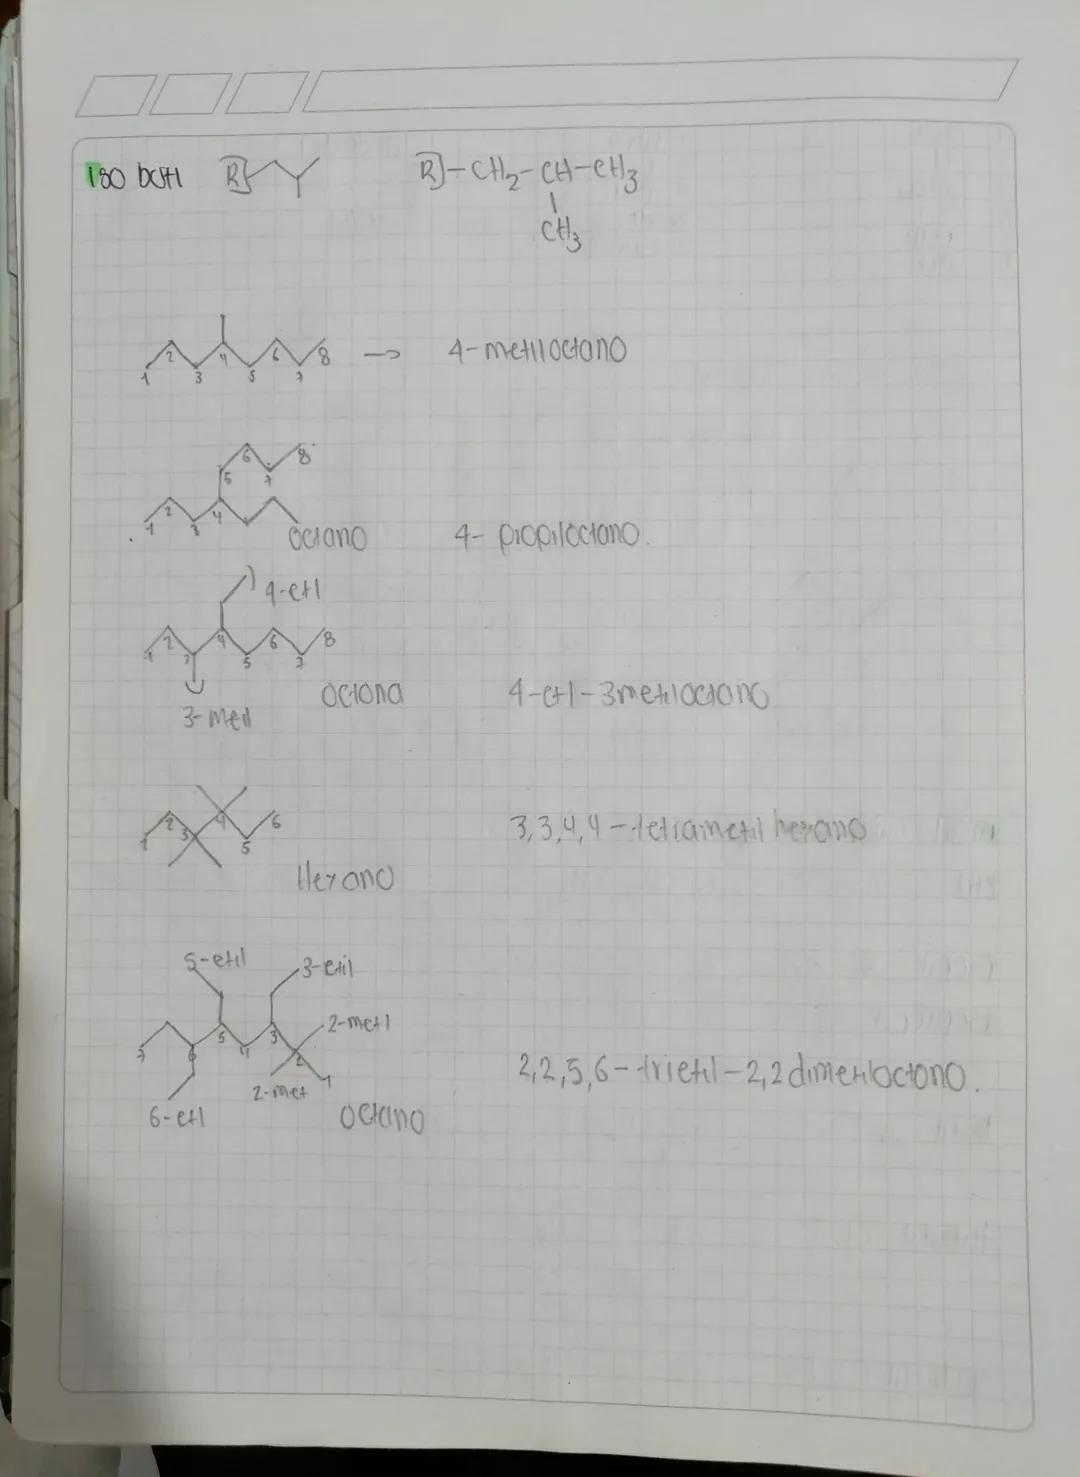 Iso butil R] R]-CH2-CH-CH3
CH3
1 2 3 4 5 6 7 8 -> 4-metiloctano
5 6 7 8
1 2 3 4
octano 4- propiloctano.
4-etil
1 2 3 4 5 6 7 8
octano 4-etil-3metiloctano
3-metil
1 2 3 4 5 6 3,3,4,4-tetrametil hexano
Hexano
5-etil 3-etil
2-metil
7 6 5 4 3 2 1
2-met 2,2,5,6-trietil-2,2dimetiloctono.
6-etil octano